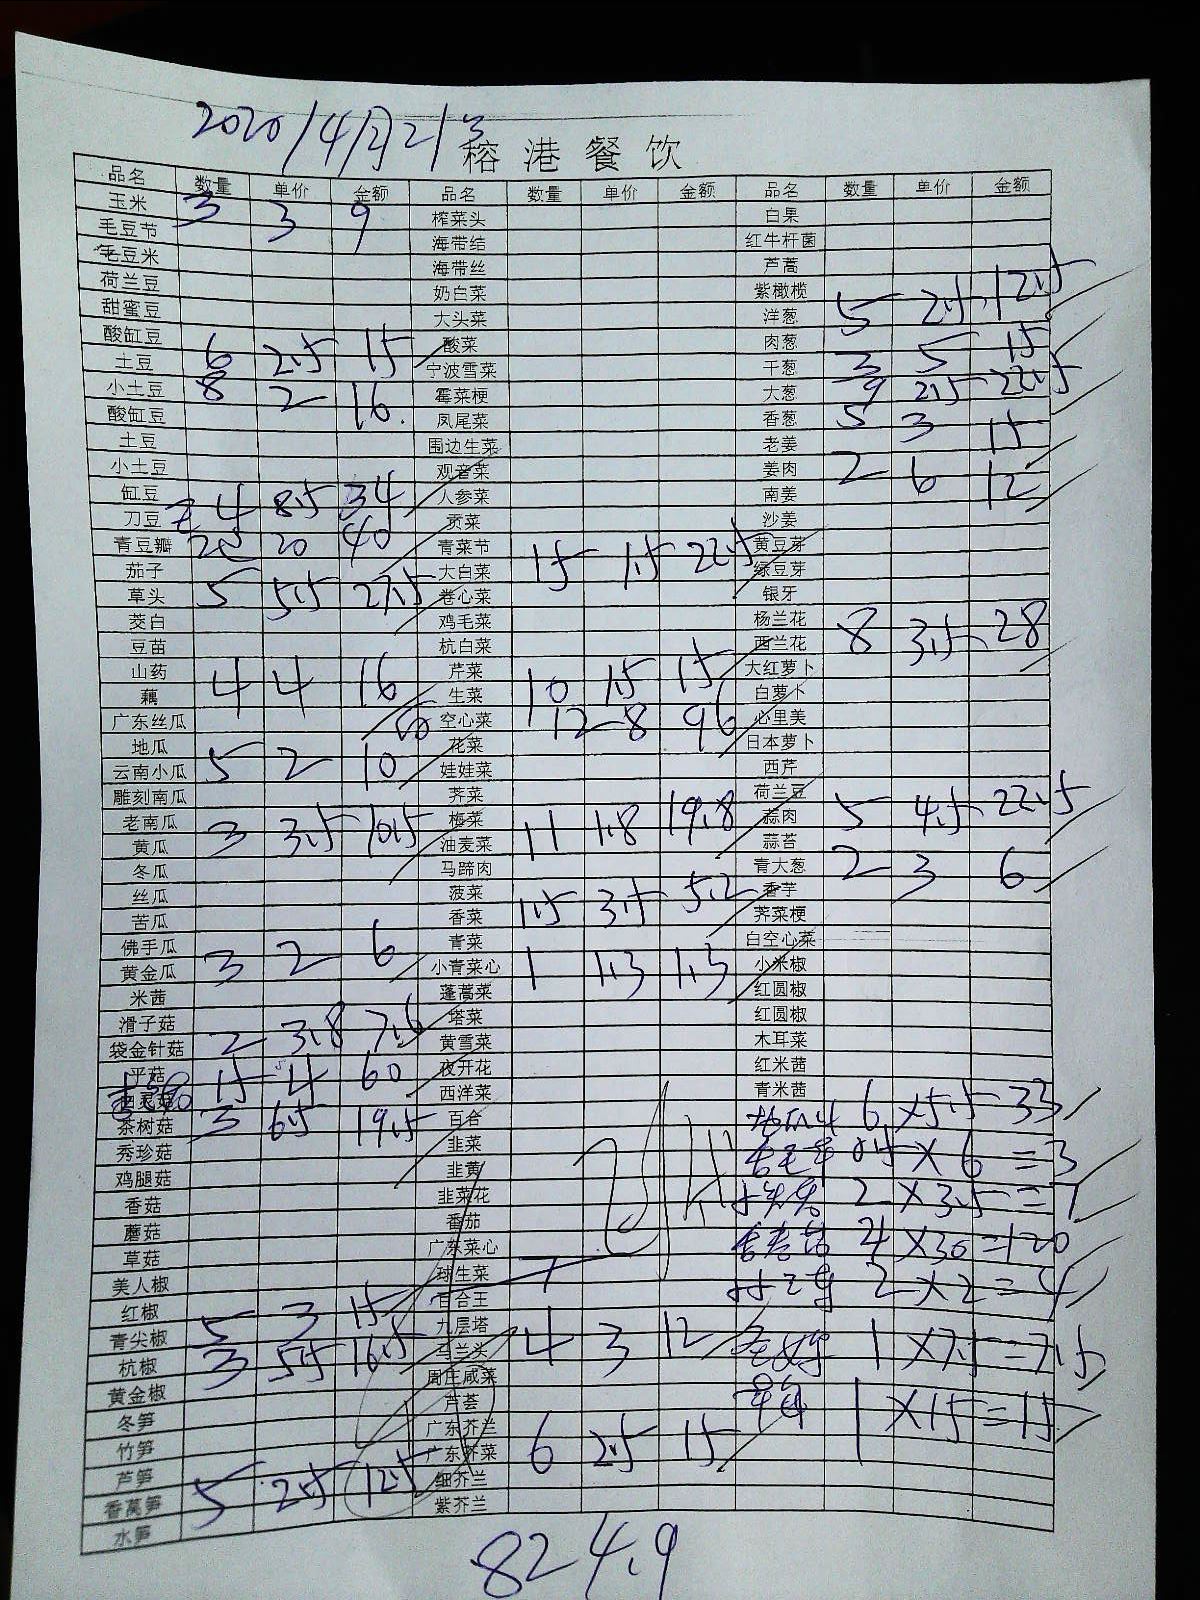 2020/4月21号
榕港餐饮
品名 数量 单价 金额 品名 数量 单价 金额 品名 数量 单价 金额
玉米 3 3 9
毛豆节
毛豆米
荷兰豆
甜蜜豆
酸缸豆
土豆 6 2.5 15
小土豆 8 2 16
酸缸豆
土豆
小土豆
缸豆
刀豆 4 8.5 34
青豆瓣 2 20 40
茄子
草头 5 5.5 27.5
茭白
豆苗
山药
藕 4 4 16
广东丝瓜
地瓜
云南小瓜 5 2 10
雕刻南瓜
老南瓜
黄瓜 3 3.5 10.5
冬瓜
丝瓜
苦瓜
佛手瓜
黄金瓜 3 2 6
米茜
滑子菇
袋金针菇 2 3.8 7.6
平菇 15 4 60
茶树菇 3 6.5 19.5
秀珍菇
鸡腿菇
香菇
蘑菇
草菇
美人椒
红椒
青尖椒 5 3 15
杭椒 3 5.5 16.5
黄金椒
冬笋
竹笋
芦笋
香莴笋 5 2.5 12.5
水笋
榨菜头
海带结
海带丝
奶白菜
大头菜
酸菜
宁波雪菜
霉菜梗
凤尾菜
围边生菜
观音菜
人参菜
贡菜
青菜节
大白菜 15 1.5 22.5
卷心菜
鸡毛菜
杭白菜
芹菜
生菜 10 1.5 15
空心菜 12 8 96
花菜
娃娃菜
荠菜
梅菜
油麦菜 11 1.8 19.8
马蹄肉
菠菜
香菜 1.5 3.5 5.2
青菜
小青菜心 1 1.3 1.3
蓬蒿菜
塔菜
黄雪菜
夜开花
西洋菜
百合
韭菜
韭黄
韭菜花
番茄
广东菜心
球生菜
百合王
九层塔
马兰头 4 3 12
周庄咸菜
芦荟
广东芥兰
广东芥菜 6 2.5 15
细芥兰
紫芥兰
白果
红牛杆菌
芦蒿
紫橄榄
洋葱 5 2.5 12.5
肉葱
干葱 3 5 15
大葱 9 2.5 22.5
香葱 5 3 15
老姜
姜肉 2 6 12
南姜
沙姜
黄豆芽
绿豆芽
银牙
杨兰花
西兰花 8 3.5 28
大红萝卜
白萝卜
心里美
日本萝卜
西芹
荷兰豆
蒜肉 5 4.5 22.5
蒜苔
青大葱 2 3 6
香芋
荠菜梗
白空心菜
小米椒
红圆椒
红圆椒
木耳菜
红米茜
青米茜
6 ×5.5 = 33
0.5 × 6 = 3
2 ×3.5 = 7
4 ×30 = 120
2 ×2 = 4
1 ×7.5 = 7.5
1 ×15 = 15
824.9